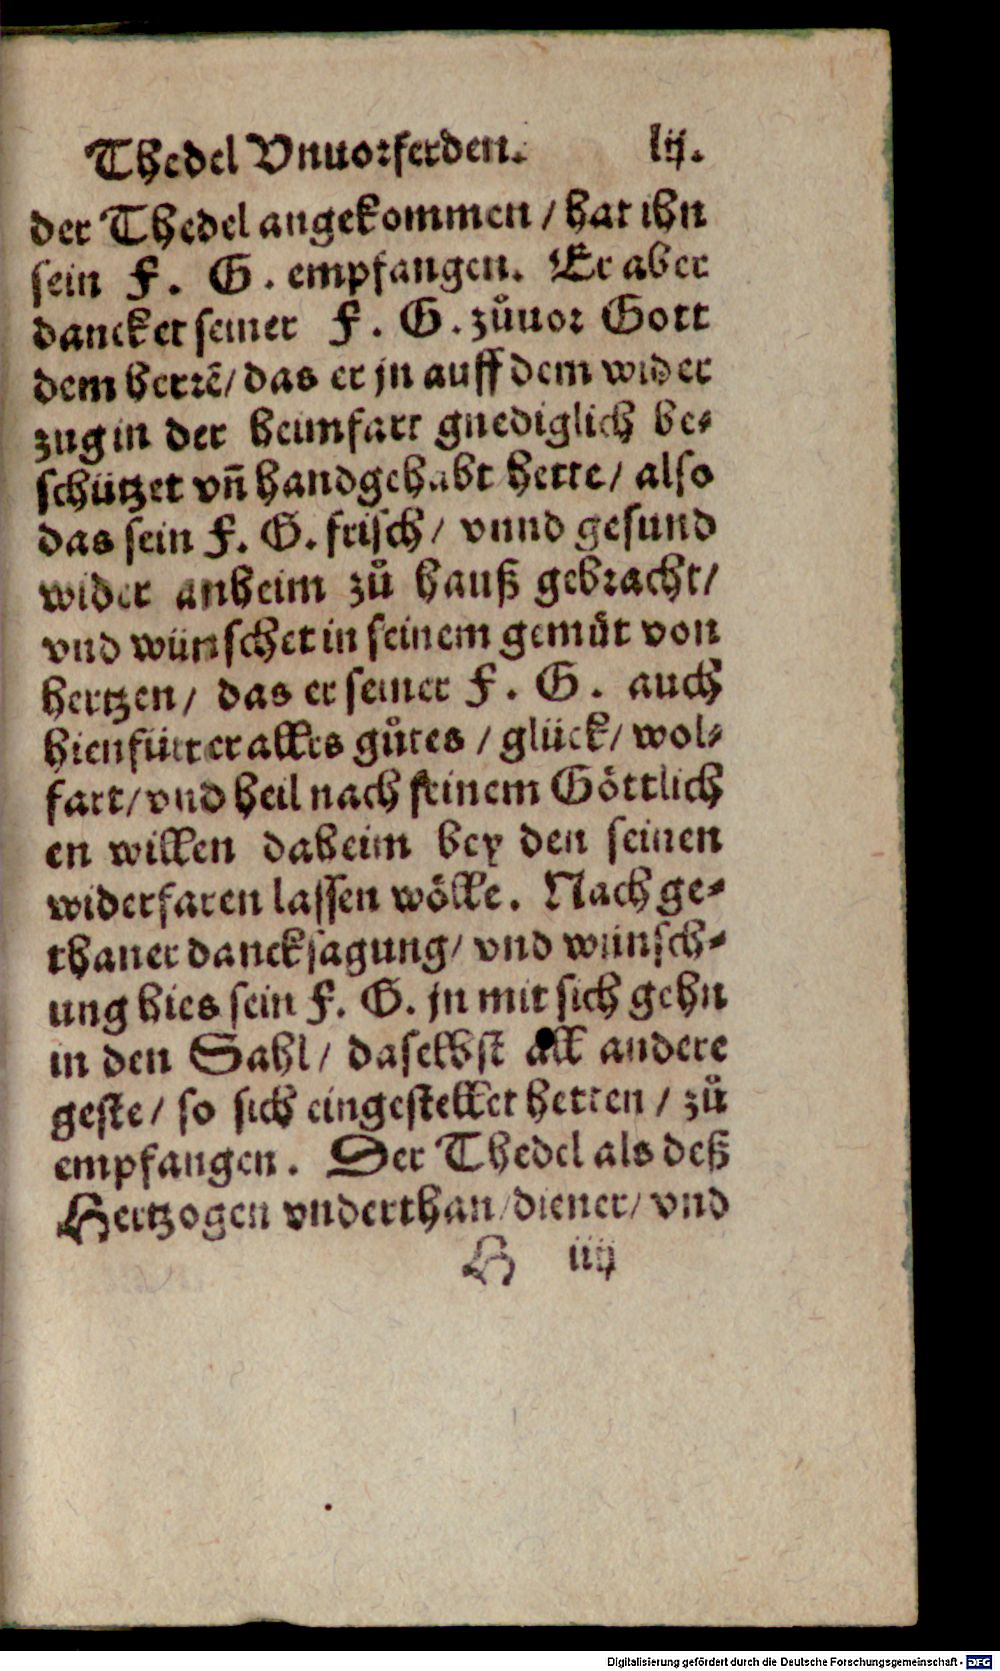 Thedel Vnuorferden. lij.
der Thedel angekommen / hat ihn
sein F. G. empfangen. Er aber
dancket seiner F. G. zůuor Gott
dem herrẽ/ das er jn auff dem wider
zug in der heimfart gnediglich be-
schützet vñ handgehabt hette / also
das sein F. G. frisch / vnnd gesund
wider anheim zů hauß gebracht/
vnd wünschet in seinem gemüt von
hertzen / das er seiner F. G. auch
hienfürter alles gůtes / glück / wol-
fart / vnd heil nach seinem Göttlich
en willen daheim bey den seinen
widerfaren lassen wölle. Nach ge-
thaner dancksagung / vnd wünsch-
ung hies sein F. G. jn mit sich gehn
in den Sahl / daselbst all andere
geste / so sich eingestellet hetten / zů
empfangen. Der Thedel als deß
Hertzogen vnderthan / diener / vnd
H iiij
Digitalisierung gefördert durch die Deutsche Forschungsgemeinschaft - DFG